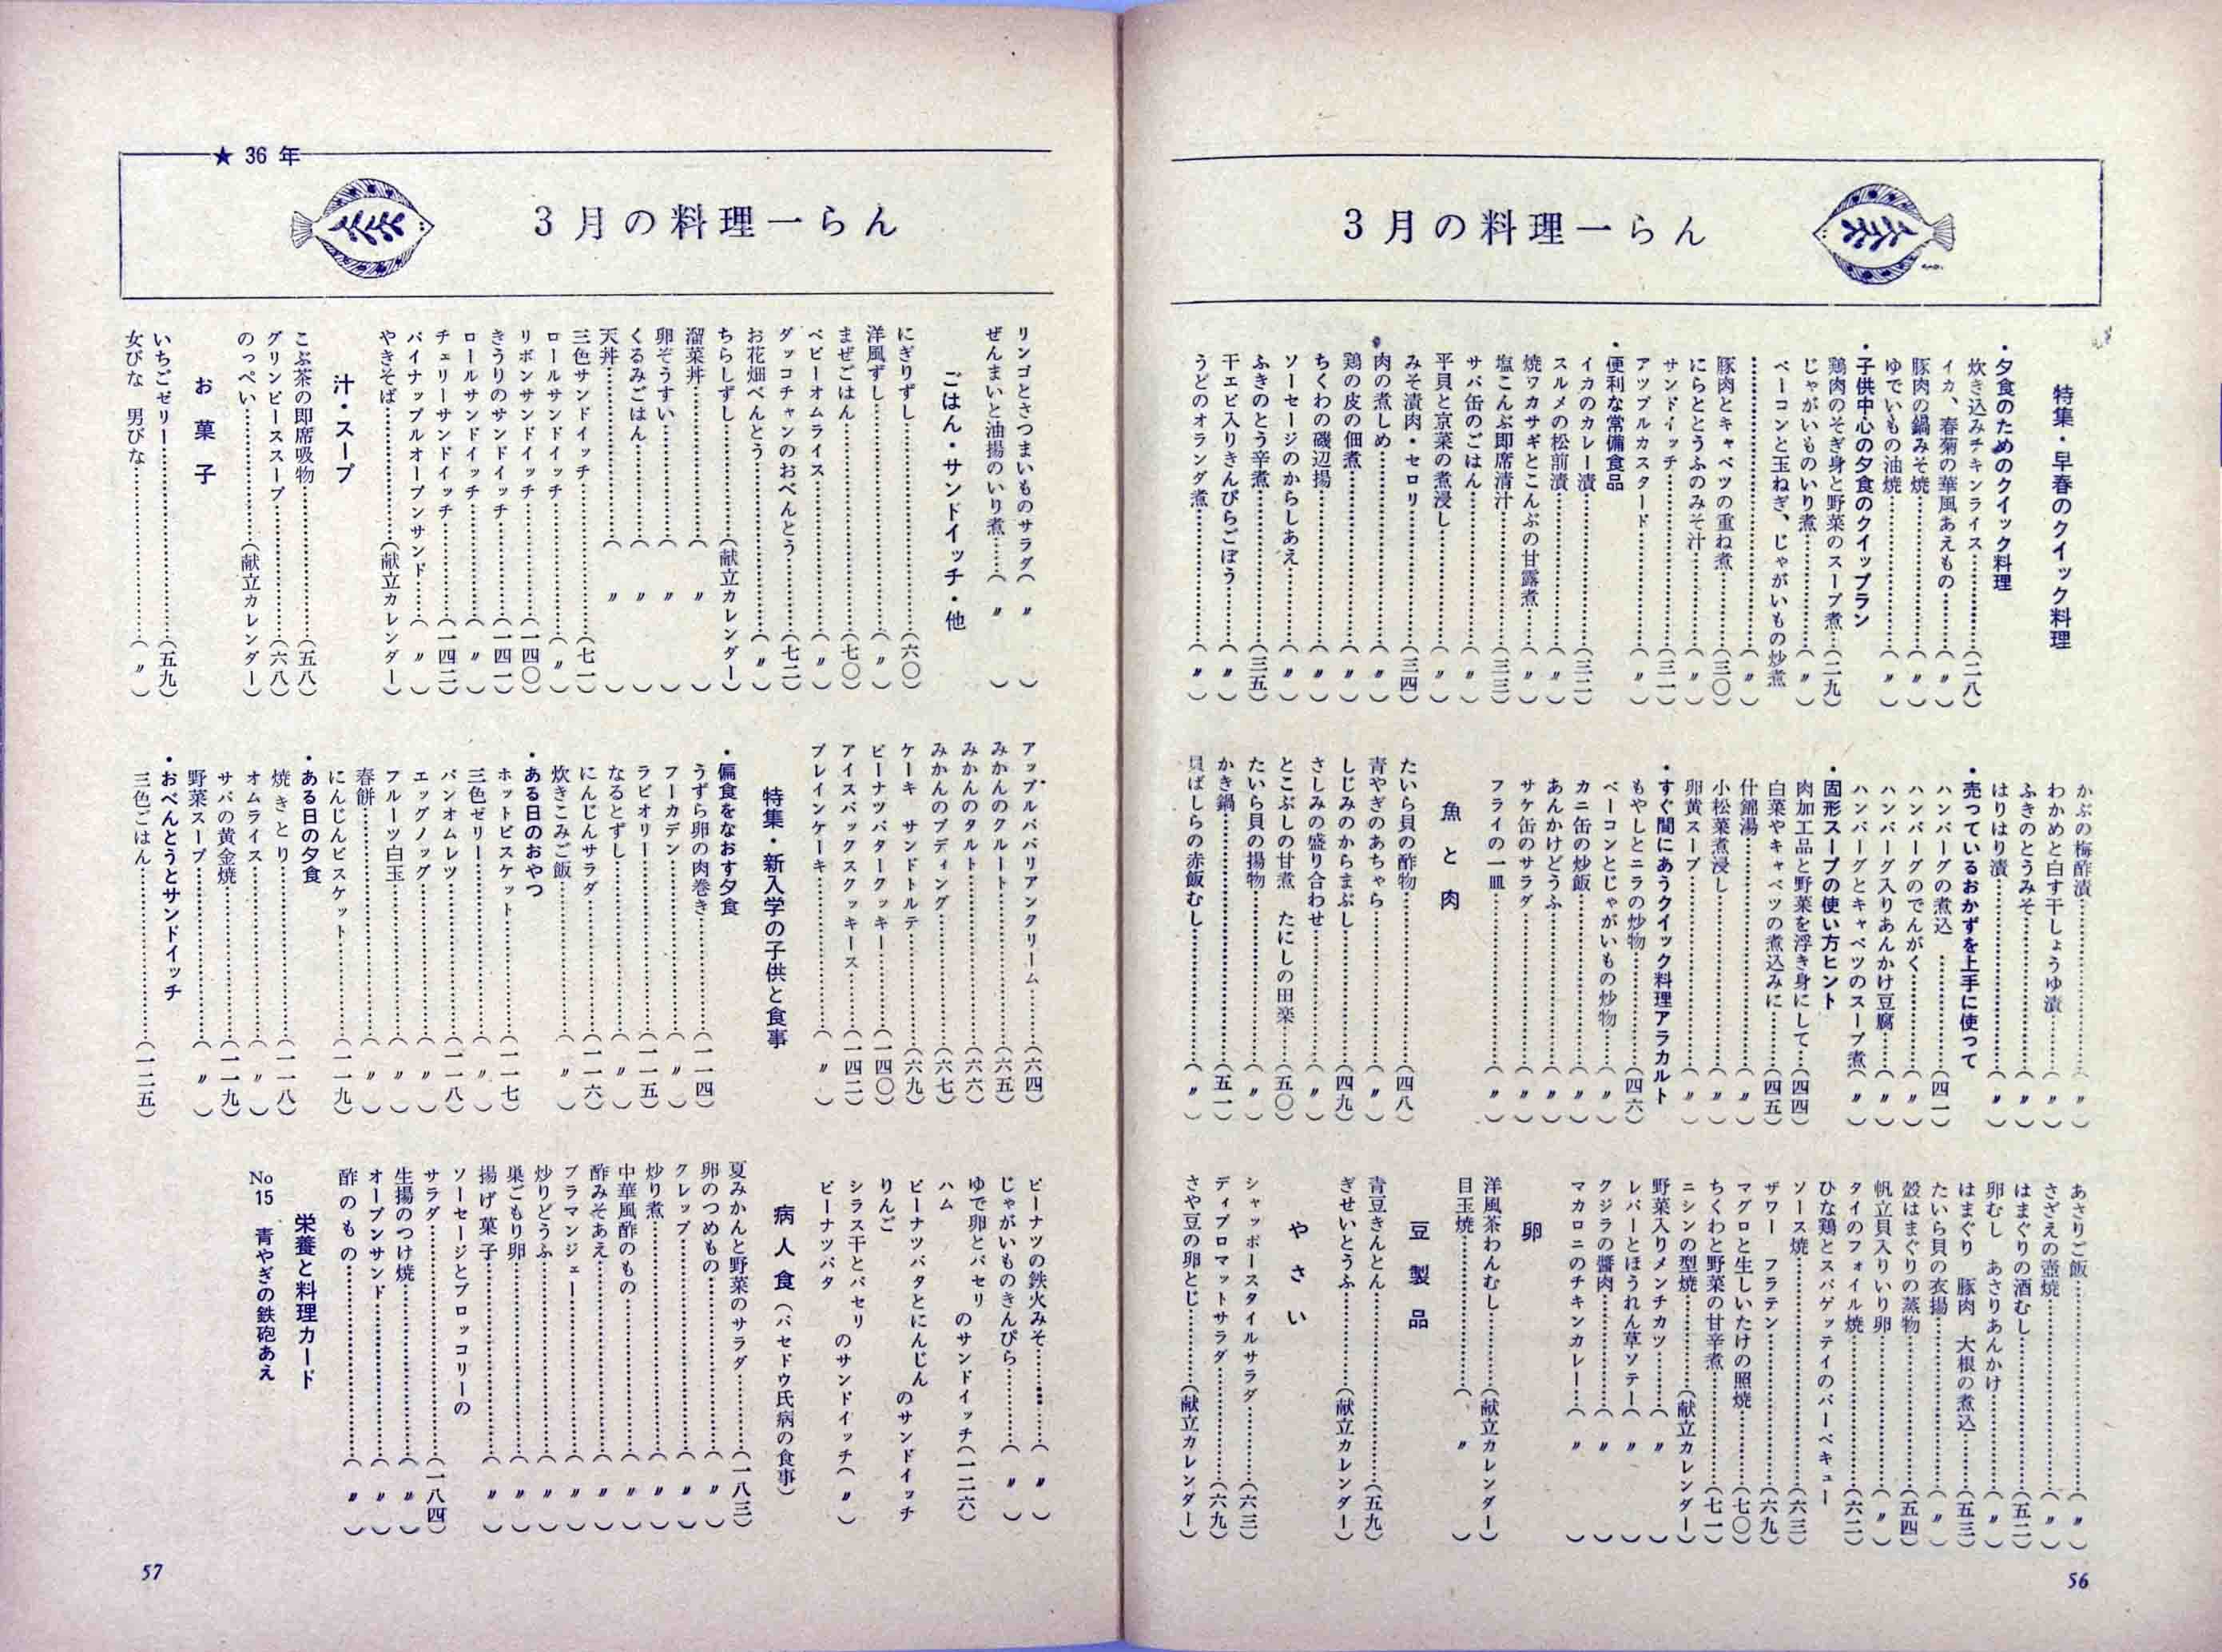 3月の料理一らん
特集・早春のクイック料理
・夕食のためのクイック料理
炊き込みチキンライス……(二八)
イカ、春菊の華風あえもの……(〃)
豚肉の鍋みそ焼……(〃)
ゆでいもの油焼……(〃)
・子供中心の夕食のクイップラン
鶏肉のそぎ身と野菜のスープ煮…(二九)
じゃがいものいり煮……(〃)
ベーコンと玉ねぎ、じゃがいもの炒煮
……(〃)
豚肉とキャベツの重ね煮……(三〇)
にらととうふのみそ汁……(〃)
サンドイッチ……(三一)
アップルカスタード……(〃)
・便利な常備食品
イカのカレー漬……(三二)
スルメの松前漬……(〃)
焼ワカサギとこんぶの甘露煮…(〃)
塩こんぶ即席清汁……(三三)
サバ缶のごはん……(〃)
平貝と京菜の煮浸し……(〃)
みそ漬肉・セロリ……(三四)
肉の煮しめ……(〃)
鶏の皮の佃煮……(〃)
ちくわの磯辺揚……(〃)
ソーセージのからしあえ……(〃)
ふきのとう辛煮……(三五)
干エビ入りきんぴらごぼう……(〃)
うどのオランダ煮……(〃)
かぶの梅酢漬……(〃)
わかめと白す干しょうゆ漬……(〃)
ふきのとうみそ……(〃)
はりはり漬……(〃)
・売っているおかずを上手に使って
ハンバーグの煮込……(四一)
ハンバーグのでんがく……(〃)
ハンバーグ入りあんかけ豆腐…(〃)
ハンバーグとキャベツのスープ煮(〃)
・固形スープの使い方ヒント
肉加工品と野菜を浮き身にして…(四四)
白菜やキャベツの煮込みに……(四五)
什錦湯……(〃)
小松菜煮浸し……(〃)
卵黄スープ……(〃)
・すぐ間にあうクイック料理アラカルト
もやしとニラの炒物……(四六)
ベーコンとじゃがいもの炒物…(〃)
カニ缶の炒飯……(〃)
あんかけどうふ……(〃)
サケ缶のサラダ……(〃)
フライの一皿……(〃)
魚と肉
たいら貝の酢物……(四八)
青やぎのあちゃら……(〃)
しじみのからまぶし……(四九)
さしみの盛り合わせ……(〃)
とこぶしの甘煮 たにしの田楽…(五〇)
たいら貝の揚物……(〃)
かき鍋……(五一)
貝ばしらの赤飯むし……(〃)
あさりご飯……(〃)
さざえの壺焼……(〃)
はまぐりの酒むし……(五二)
卵むし あさりあんかけ……(〃)
はまぐり 豚肉 大根の煮込……(五三)
たいら貝の衣揚……(〃)
殻はまぐりの蒸物……(五四)
帆立貝入りいり卵……(〃)
タイのフォイル焼……(六二)
ひな鶏とスパゲッティのバーベキュー
ソース焼……(六三)
ザワー フラテン……(六九)
マグロと生しいたけの照焼……(七〇)
ちくわと野菜の甘辛煮……(七一)
ニシンの型焼……(献立カレンダー)
野菜入りメンチカツ……(〃)
レバーとほうれん草ソテー…(〃)
クジラの醬肉……(〃)
マカロニのチキンカレー…(〃)
卵
洋風茶わんむし……(献立カレンダー)
目玉焼……(〃)
豆製品
青豆きんとん……(五九)
ぎせいとうふ……(献立カレンダー)
やさい
シャッポースタイルサラダ……(六三)
ディプロマットサラダ……(六九)
さや豆の卵とじ……(献立カレンダー)
56
★36年
3月の料理一らん
リンゴとさつまいものサラダ(〃)
ぜんまいと油揚のいり煮……(〃)
ごはん・サンドイッチ・他
にぎりずし……(六〇)
洋風ずし……(〃)
まぜごはん……(七〇)
ベビーオムライス……(〃)
ダッコチャンのおべんとう……(七二)
お花畑べんとう……(〃)
ちらしずし……(献立カレンダー)
溜菜丼……(〃)
卵ぞうすい……(〃)
くるみごはん……(〃)
天丼……(〃)
三色サンドイッチ……(七一)
ロールサンドイッチ……(〃)
リボンサンドイッチ……(一四〇)
きうりのサンドイッチ……(一四一)
ロールサンドイッチ……(〃)
チェリーサンドイッチ……(一四二)
パイナップルオープンサンド…(〃)
やきそば……(献立カレンダー)
汁・スープ
こぶ茶の即席吸物……(五八)
グリンピーススープ……(六八)
のっぺい……(献立カレンダー)
お菓子
いちごゼリー……(五九)
女びな 男びな……(〃)
アップルババリアンクリーム…(六四)
みかんのクルート……(六五)
みかんのタルト……(六六)
みかんのプディング……(六七)
ケーキ サンドトルテ……(六九)
ピーナツバタークッキー……(一四〇)
アイスバックスクッキース…(一四二)
プレインケーキ……(〃)
特集・新入学の子供と食事
・偏食をなおす夕食
うずら卵の肉巻き……(一一四)
フーカデン……(〃)
ラビオリー……(一一五)
なるとずし……(〃)
にんじんサラダ……(一一六)
炊きこみご飯……(〃)
・ある日のおやつ
ホットビスケット……(一一七)
三色ゼリー……(〃)
パンオムレツ……(一一八)
エッグノッグ……(〃)
フルーツ白玉……(〃)
春餅……(〃)
にんじんビスケット……(一一九)
・ある日の夕食
焼きとり……(一一八)
オムライス……(〃)
サバの黄金焼……(一一九)
野菜スープ……(〃)
・おべんとうとサンドイッチ
三色ごはん……(一二五)
ピーナツの鉄火みそ……(〃)
じゃがいものきんぴら……(〃)
ゆで卵とパセリ
ハム
のサンドイッチ(一二六)
ピーナツバタとにんじん
りんご
のサンドイッチ
シラス干とパセリ
ピーナツバタ
のサンドイッチ(〃)
病人食(バセドウ氏病の食事)
夏みかんと野菜のサラダ……(一八三)
卵のつめもの……(〃)
クレップ……(〃)
炒り煮……(〃)
中華風酢のもの……(〃)
酢みそあえ……(〃)
ブラマンジェー……(〃)
炒りどうふ……(〃)
巣ごもり卵……(〃)
揚げ菓子……(〃)
ソーセージとブロッコリーの
サラダ……(一八四)
生揚のつけ焼……(〃)
オープンサンド……(〃)
酢のもの……(〃)
栄養と料理カード
No15 青やぎの鉄砲あえ
57